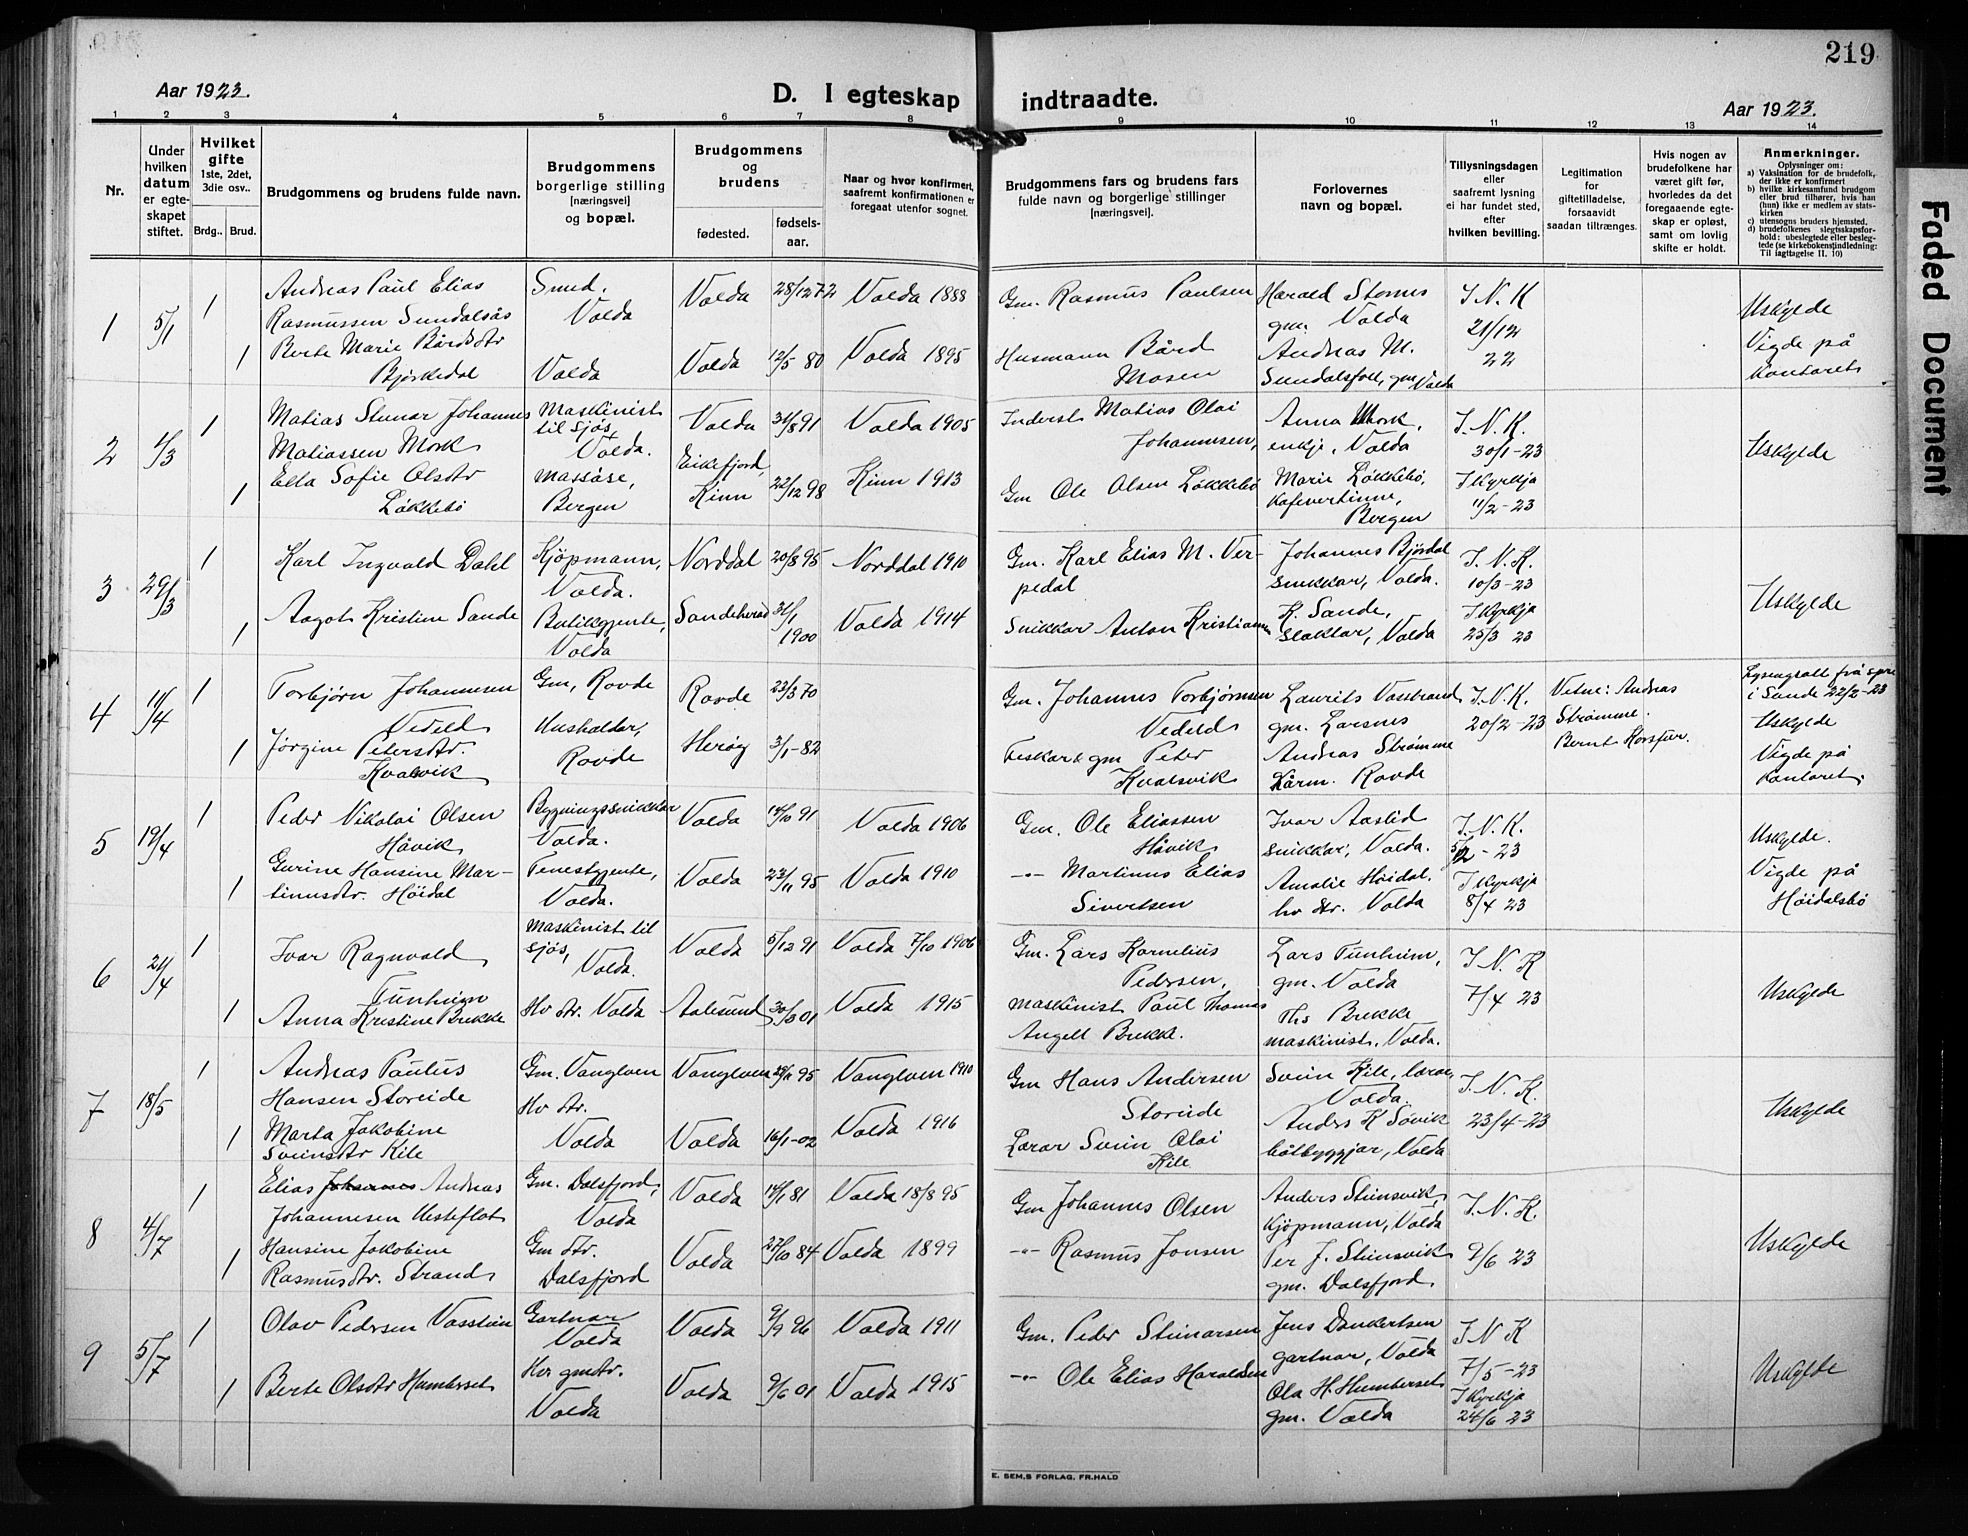 219
Aar 1923.
D. I egteskap indtraadte.
Aar 1923.
1 2 3 4 5 6 7 8 9 10 11 12 13 14
Nr.
Under hvilken datum er egteskapet stiftet.
Hvilket gifte
1ste, 2det, 3die osv..
Brdg.. Brud.
Brudgommens og brudens fulde navn.
Brudgommens borgerlige stilling [næringsvei] og bopæl.
Brudgommens og brudens
fødested.
fødsels-aar.
Naar og hvor konfirmert, saafremt konfirmationen er foregaat utenfor sognet.
Brudgommens fars og brudens fars fulde navn og borgerlige stillinger [næringsvei].
Forlovernes navn og bopæl.
Tillysningsdagen eller saafremt lysning ei har fundet sted, efter hvilken bevilling.
Legitimation for giftetilladelse, forsaavidt saadan tiltrænges.
Hvis nogen av brudefolkene har været gift før, hvorledes da det foregaaende egteskap er opløst, samt om lovlig skifte er holdt.
Anmerkninger.
Oplysninger om:
a) Vaksination for de brudefolk, der ikke er konfirmert
b) hvilke kirkesamfund brudgom eller brud tilhører, hvis han (hun) ikke er medlem av statskirken
c) utensogns bruders hjemsted.
d) brudefolkenes slegtsskapsforhold: ubeslegtede eller beslegtede (se kirkebokens indledning: Til iagttagelse II. 10)
1 5/1 1
Andreas Paul Elias
Rasmussen Sundalsås
Smed. Volda
Volda 28/12 72 Volda 1888
Gm. Rasmus Paulsen
Harald Stornes
gm. Volda
I. N. K
21/12
22
Uskylde
Vigde på
kontoret
1 Berte Marie Bårdsdtr
Bjørkedal
Volda
Volda 12/5 80 Volda 1895
Husmann Bård
Mosen
Andreas M.
Sundalsfoll, gm Volda
2 1/3 1
Matias Steinar Johannes
Matiassen Mork
Maskinist
til sjøs,
Volda.
Volda 31/8 91 Volda 1905
Inderst Matias Olai
Johannesen,
Anna Mork,
enkje, Volda
I. N. K.
30/1-23
Uskylde
1 Ella Sofie Olsdtr
Løkkebø
Massøse,
Bergen
Eikefjord,
Kinn
22/12 98 Kinn 1913
Gm Ole Olsen Løkkebø
Marie Løkkebø,
Kafevertinne,
Bergen
I Kyrkja
11/2-23
3 29/3 1
Karl Ingvald Dahl
Kjøpmann,
Volda.
Norddal 20/8 95 Norddal 1910
Gm. Karl Elias M. Ver-
pedal
Johannes Bjørdal
snikkar, Volda.
I. N. K.
10/3-23
Uskylde
1 Aagot Kristine Sande
Butikgjente,
Volda
Sandeherad 31/1 1900 Volda 1914
Snikkar Anton Kristiansen
K. Sande,
slaktar, Volda
I Kyrkja
25/3 23
4 11/4 1
Torbjørn Johannesen
Vedeld
Gm, Rovde
Rovde 23/3 70
Gm. Johannes Torbjørnsen
Vedeld
Laurits Vasstrand
gm. Larsnes
I. N. K.
20/2-23
Vitne: Andreas
Strømme.
Bernt Korsfur.
i Sande 22/2-23
Uskylde
Vigde på
kontoret.
1 Jørgine Petersdtr.
Kvalsvik
Hushaldar,
Rovde
Herøy 3/1-82
Feskar & gm Peter
Kvalsvik
Andreas Strømme
Kårm. Rovde
5 19/4 1
Peder Nikolai Olsen
Håvik
Bygningssnikkar
Volda.
Volda 14/10 91 Volda 1906
Gm. Ole Eliassen
Håvik
Ivar Aaslid
snikkar, Volda.
I. N. K.
5/2-23
Uskylde.
Vigde på
Høidalsbø
1 Gurine Hansine Mar-
tinusdtr. Höidal
Tenestgjente,
Volda.
Volda 23/11 95 Volda 1910
-"- Martinus Elias
Sivertsen
Amalie Höidal.
hv dtr. Volda
I Kyrkja
8/4 23
6 21/4 1
Ivar Ragnvald
Tunheim
Maskinist til
sjøs,
Volda.
Volda 5/12 91 Volda 7/10 1906
Gm. Lars Kornelius
Pedersen,
Lars Tunheim,
gm. Volda
I N. K
7/4 23
Uskylde
1 Anna Kristine Brekke
Hv dtr. Volda
Aalesund 30/3 01 Volda 1915
maskinist Paul Thomas
Angell Brekke.
Ths Brekke
maskinist. Volda.
7 18/5 1
Andreas Paulus
Hansen Storeide
Gm. Vanylven
Vanylven 29/11 95 Vanylven 1910
Gm Hans Andersen
Storeide
Svein Kile, lærar,
Volda.
I. N. K.
23/4-23
Uskylde
1 Marta Jakobine
Sveinsdtr Kile
Hv dtr.
Volda
Volda 16/1-02 Volda 1916
Lærar Svein Olai
Kile
Anders K Søvik
båtbyggjar, Volda
8 4/7 1
Elias Johannes Andreas
Johannesen Hesteflot
Gm. Dalsfjord,
Volda
Volda 14/1 81 Volda 18/8 95
Gm Johannes Olsen
Anders Steinsvik,
Kjøpmann, Volda
I. N. K.
9/6 23
Uskylde
1 Hansine Jakobine
Rasmusdtr. Strand
Gm dtr.
Dalsfjord
Volda 27/10 84 Volda 1899
-"- Rasmus Jonsen
Per J. Steinsvik
gm. Dalsfjord
9 5/7 1
Olav Pedersen Vasstein
Gartnar
Volda
Volda 9/9 96 Volda 1911
Gm. Peder Steinarsen
Jens Dankertsen
gartnar, Volda
I N K
7/5-23
Uskylde
1 Berte Olsdtr Humberset
Hv gmdtr.
Volda
Volda 9/6 01 Volda 1915
-"- Ole Elias Haraldsen
Ola H. Humberset
gm. Volda
I Kyrkja
24/6 23
E. SEM,S FORLAG, FR.HALD
Faded Document